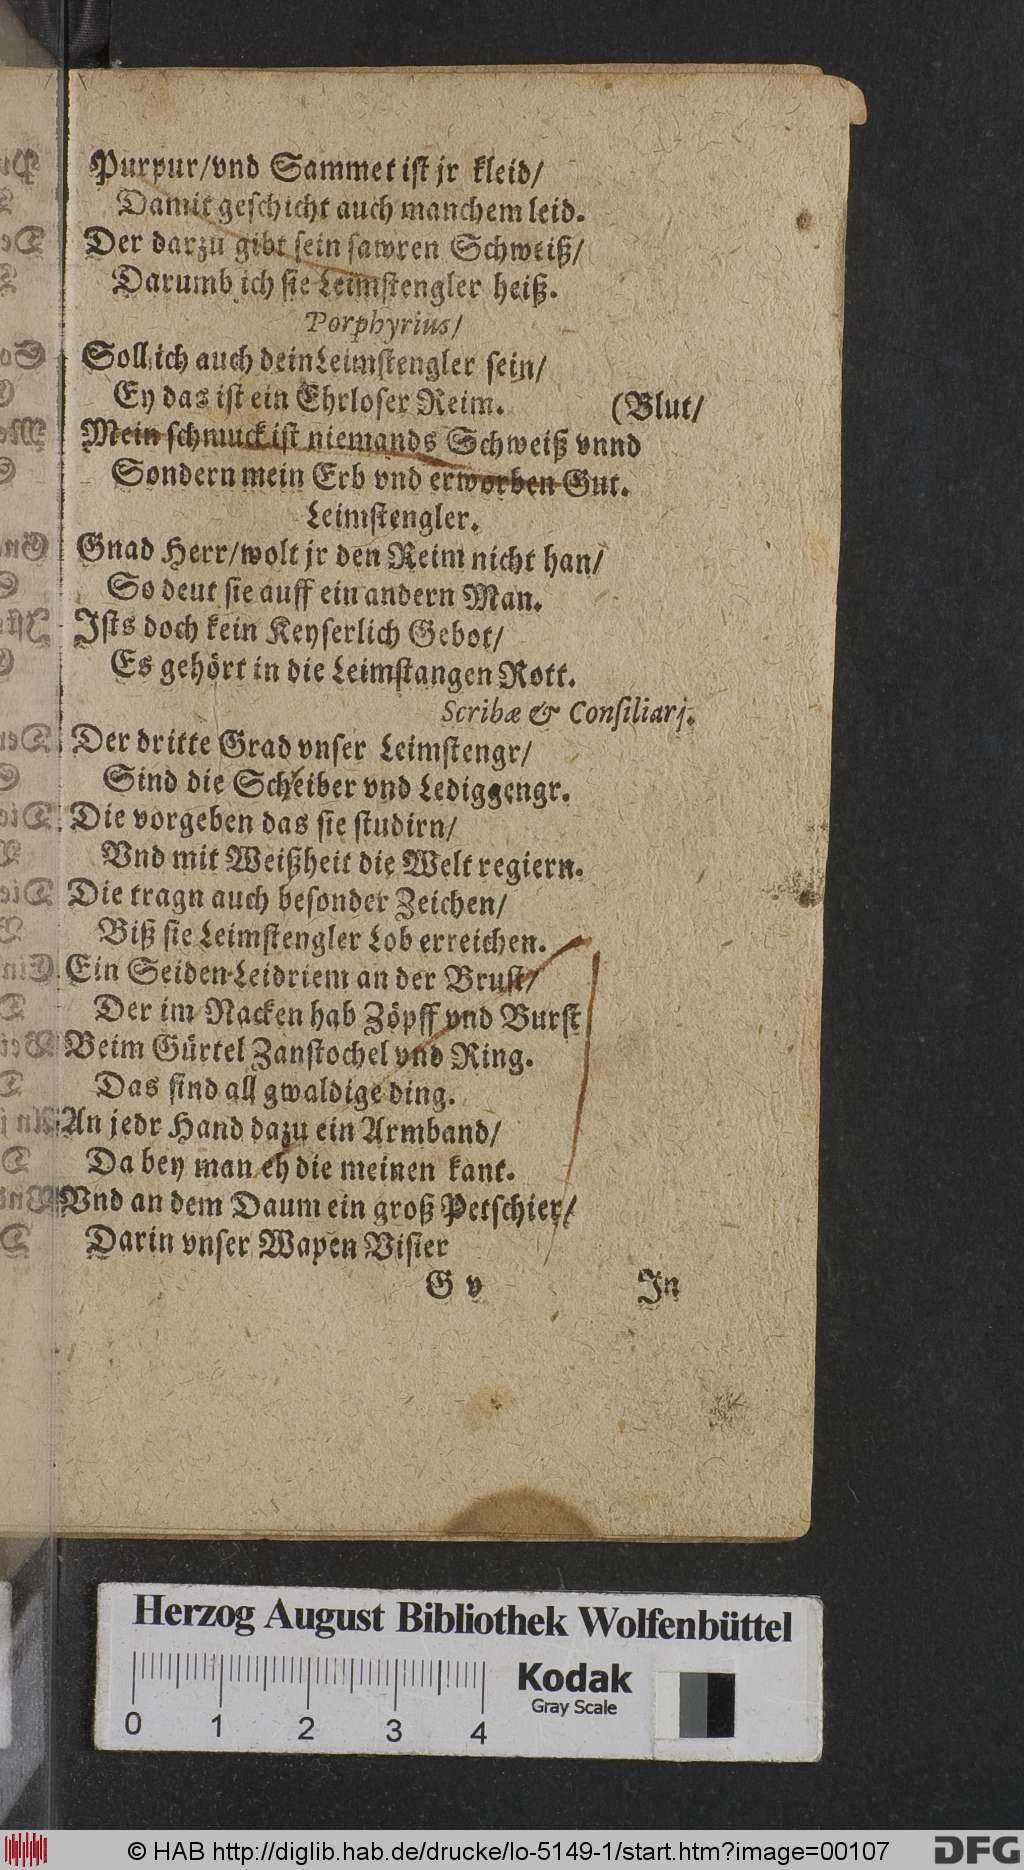 Purpur/vnd Sammet ist jr kleid/
Damit geschicht auch manchem leid.
Der darzu gibt sein sawren Schweiß/
Darumb ich sie Leimstengler heiß.
Porphyrius/
Soll ich auch dein Leimstengler sein/
Ey das ist ein Ehrloser Reim. (Blut/
Mein schmuck ist niemands Schweiß vnnd
Sondern mein Erb vnd erworben Gut.
Leimstengler.
Gnad Herr/wolt jr den Reim nicht han/
So deut sie auff ein andern Man.
Jsts doch kein Keyserlich Gebot/
Es gehört in die Leimstangen Rott.
Scribæ & Consiliarj.
Der dritte Grad vnser Leimstengr/
Sind die Scheiber vnd Lediggengr.
Die vorgeben das sie studirn/
Vnd mit Weißheit die Welt regiern.
Die tragn auch besonder Zeichen/
Biß sie Leimstengler Lob erreichen.
Ein Seiden-Leidriem an der Brust/
Der im Nacken hab Zöpff vnd Burst
Beim Gürtel Zanstochel vnd Ring.
Das sind all gwaldige ding.
An jedr Hand dazu ein Armband/
Da bey man eh die meinen kant.
Vnd an dem Daum ein groß Petschier/
Darin vnser Wapen Visier
G v Jn
Herzog August Bibliothek Wolfenbüttel
Kodak
Gray Scale
0 1 2 3 4
© HAB http://diglib.hab.de/drucke/lo-5149-1/start.htm?image=00107
DFG